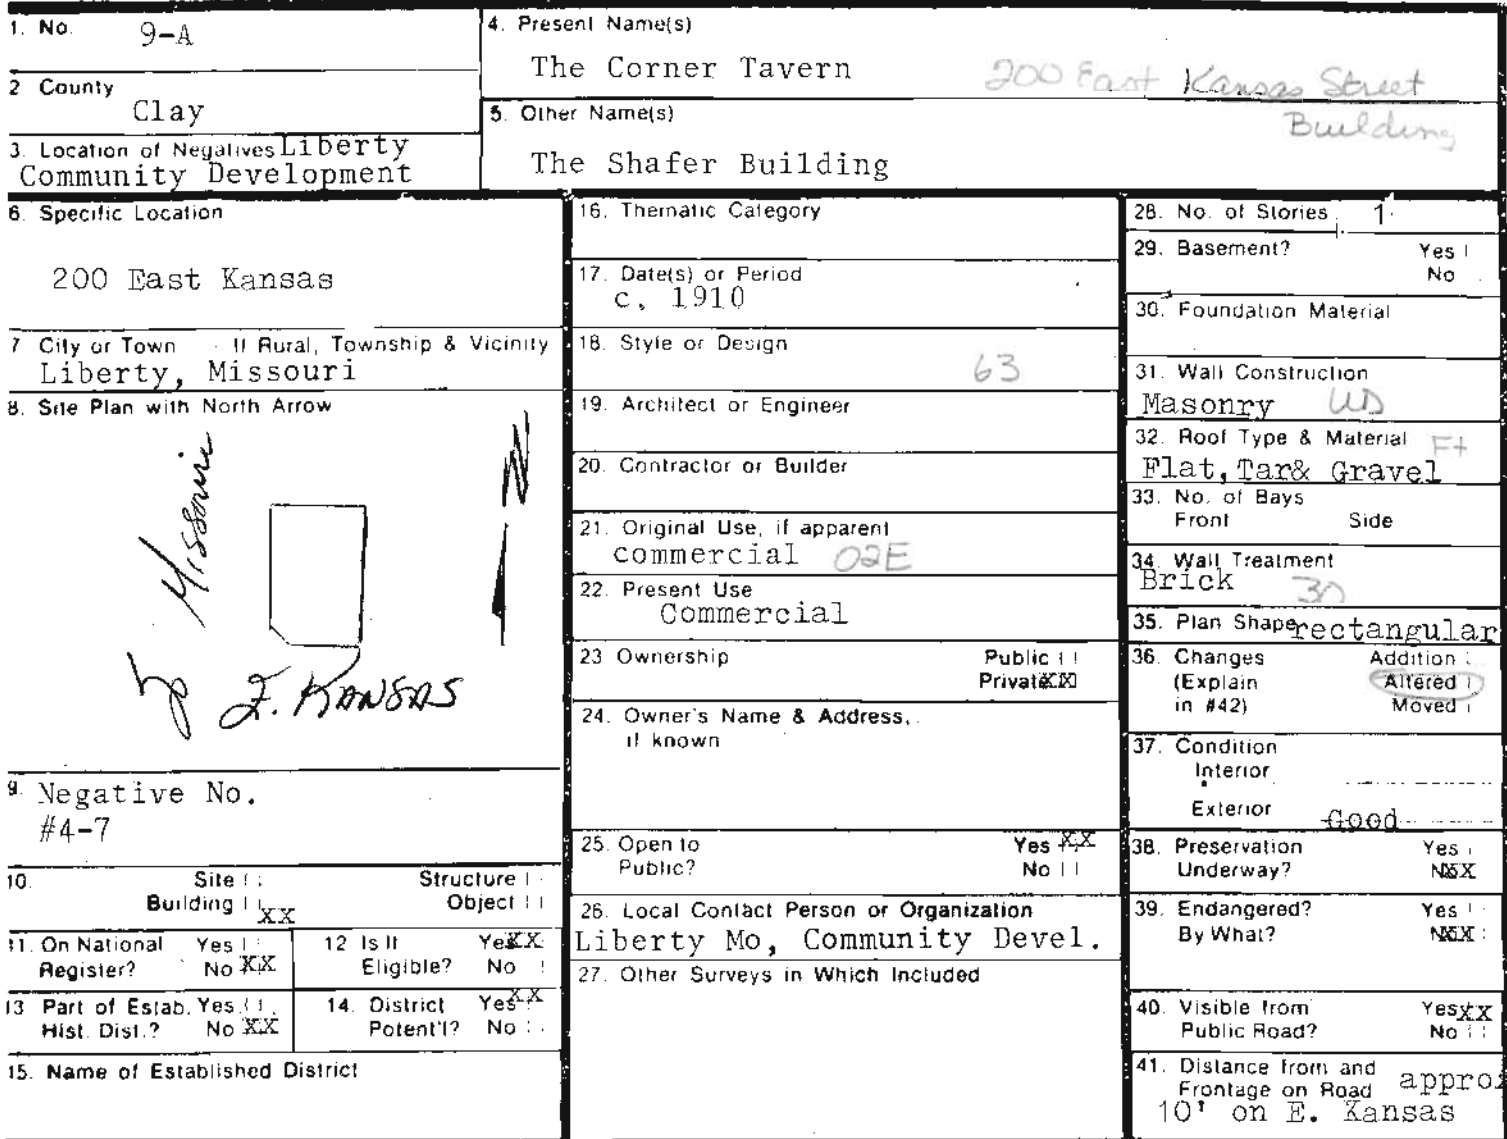 1. No. 9-A
2 County
Clay
3. Location of Negatives Liberty
Community Development
4. Present Name(s)
The Corner Tavern
200 East Kansas Street
Building
5. Other Name(s)
The Shafer Building
6. Specific Location
200 East Kansas
7 City or Town If Rural, Township & Vicinity
Liberty, Missouri
8. Site Plan with North Arrow
Missouri
N
E. KANSAS
9. Negative No.
#4-7
10. Site Structure
Building XX Object
11. On National Yes
Register? No XX
12 Is It Yes XX
Eligible? No
13 Part of Estab. Yes
Hist. Dist.? No XX
14. District Yes XX
Potent'l? No
15. Name of Established District
16. Thematic Category
17. Date(s) or Period
c. 1910
18. Style or Design
63
19. Architect or Engineer
20. Contractor or Builder
21. Original Use, if apparent
commercial 02E
22. Present Use
Commercial
23 Ownership Public
Private XX
24. Owner's Name & Address,
if known
25. Open to Yes XX
Public? No
26. Local Contact Person or Organization
Liberty Mo, Community Devel.
27. Other Surveys in Which Included
28. No. of Stories 1
29. Basement? Yes
No
30. Foundation Material
31. Wall Construction
Masonry UD
32. Roof Type & Material Ft
Flat, Tar& Gravel
33. No. of Bays
Front Side
34. Wall Treatment
Brick 30
35. Plan Shape rectangular
36. Changes Addition
(Explain Altered
in #42) Moved
37. Condition
Interior
Exterior Good
38. Preservation Yes
Underway? No XX
39. Endangered? Yes
By What? No XX
40. Visible from Yes XX
Public Road? No
41. Distance from and
Frontage on Road appro
10' on E. Kansas